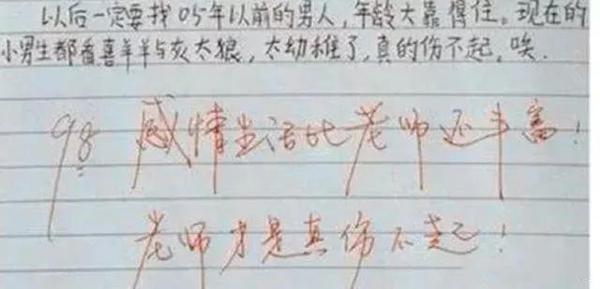 以后一定要找05年以前的男人，年龄大靠得住。现在的
小男生都看喜羊羊与灰太狼，太幼稚了，真的伤不起，唉．
98 感情生活比老师还丰富！
老师才是真伤不起！